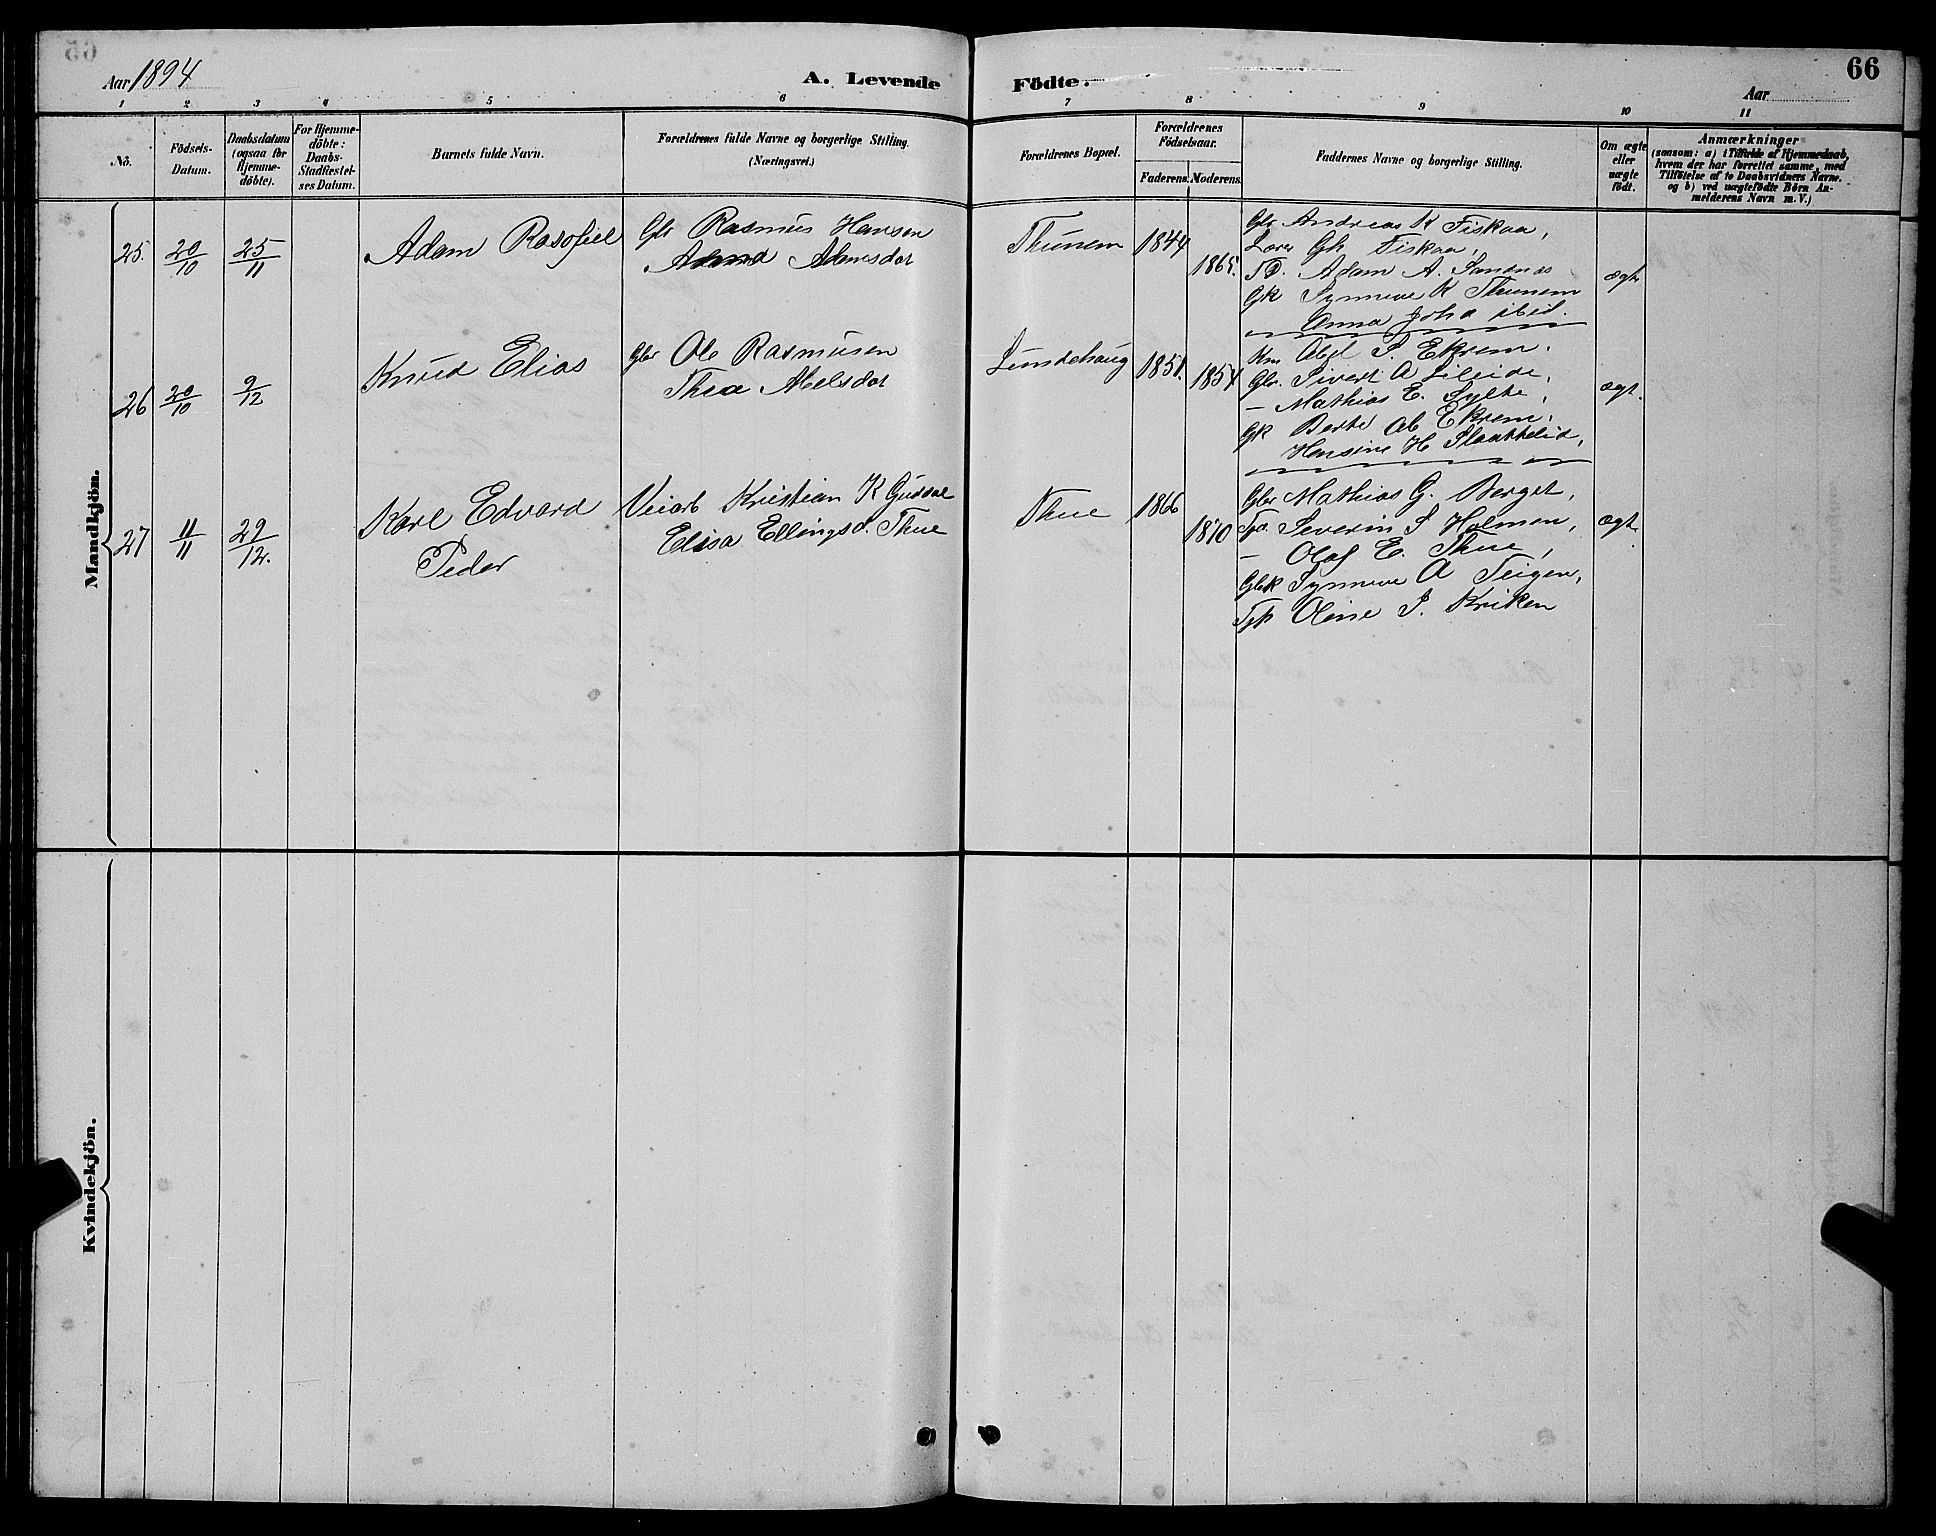 Aar 1894
A. Levende
Födte.
Aar
66
1 2 3 4 5 6 7 8 9 10 11
No.
Födsels-
Datum.
Daabsdatum
(ogsaa for
Hjemme-
döbte).
For Hjemme-
döbte:
Daabs-
Stadfæstel-
ses Datum.
Barnets fulde Navn.
Forældrenes fulde Navne og borgerlige Stilling.
(Næringsvei.)
Forældrenes Bopæl.
Forældrenes
Födselsaar.
Faderens. Moderens.
Faddernes Navne og borgerlige Stilling.
Om ægte
eller
uægte
født.
Anmærkninger
(saasom: a) i Tilfælde af Hjemmedaab,
hvem der har forrettet samme, med
Tilföielse af to Daabsvidners Navne.
og b) ved uægtefödte Börn An-
melderens Navn m. V.)
Mandkjön.
25. 20/10 25/11
Adam Rasofiel
Gbr Rasmus Hansen
Adamsdat
Thunem
1844
1865.
Gbr Andreas K Fiskaa,
Lærer Gh Fiskaa,
Adam A. Sandnæs
Gk Synneve K Thunem
Anna Joha ibid.
ægt
26 20/10 9/12
Knud Elias
Gbr Ole Rasmusen
Thea Abelsdat
Lundehaug
1851.
1854
Km Abel S. Ekrem.
Gbr. Sivert A Lileide,
— Mathias E. Sylte,
Gk Berte Ab Ekrem.
Hansine H Slaattelid,
ægt.
27 11/11 29/12.
Karl Edvard
Peder
Veiarb Kristian K Gusdal
Elisa Ellingsd. Thue
Thue
1866
1870
Gbr Mathias G. Berget,
Severin S Holmen,
— Olaf E. Thue,
Gbk Synneve A Teigen,
Tpk Oline S. Kriken
ægt
Kvindekjön.